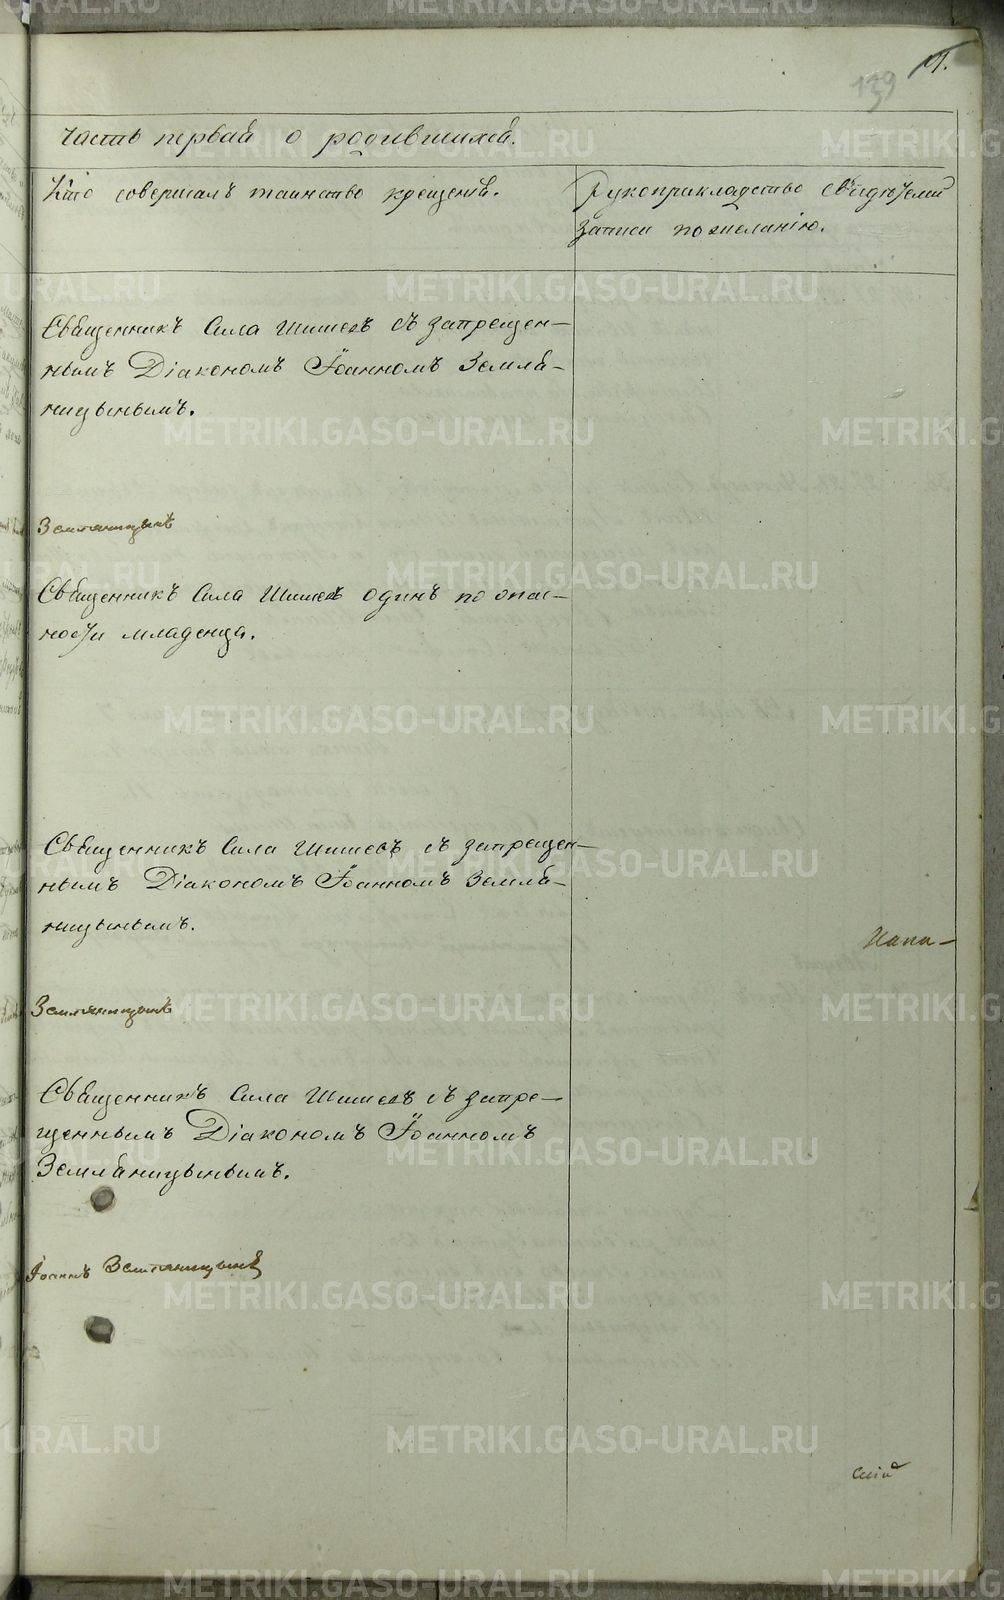 139
Часть первая о родившихся.
Кто совершалъ таинство крещенія.
Рукоприкладство свидѣтелей
записи по желанію.
Священникъ Сила Шишевъ съ запрещен-
нымъ Діакономъ Іоанномъ Земля-
ницынымъ.
Земляницынъ
Священникъ Сила Шишевъ одинъ по опас-
ности младенца.
Священникъ Сила Шишевъ съ запрещен-
нымъ Діакономъ Іоанномъ Земля-
ницынымъ.
Земляницынъ
Священникъ Сила Шишевъ съ запре-
щеннымъ Діакономъ Іоанномъ
Земляницынымъ.
Іоаннъ Земляницынъ
METRIKI.GASO-URAL.RU